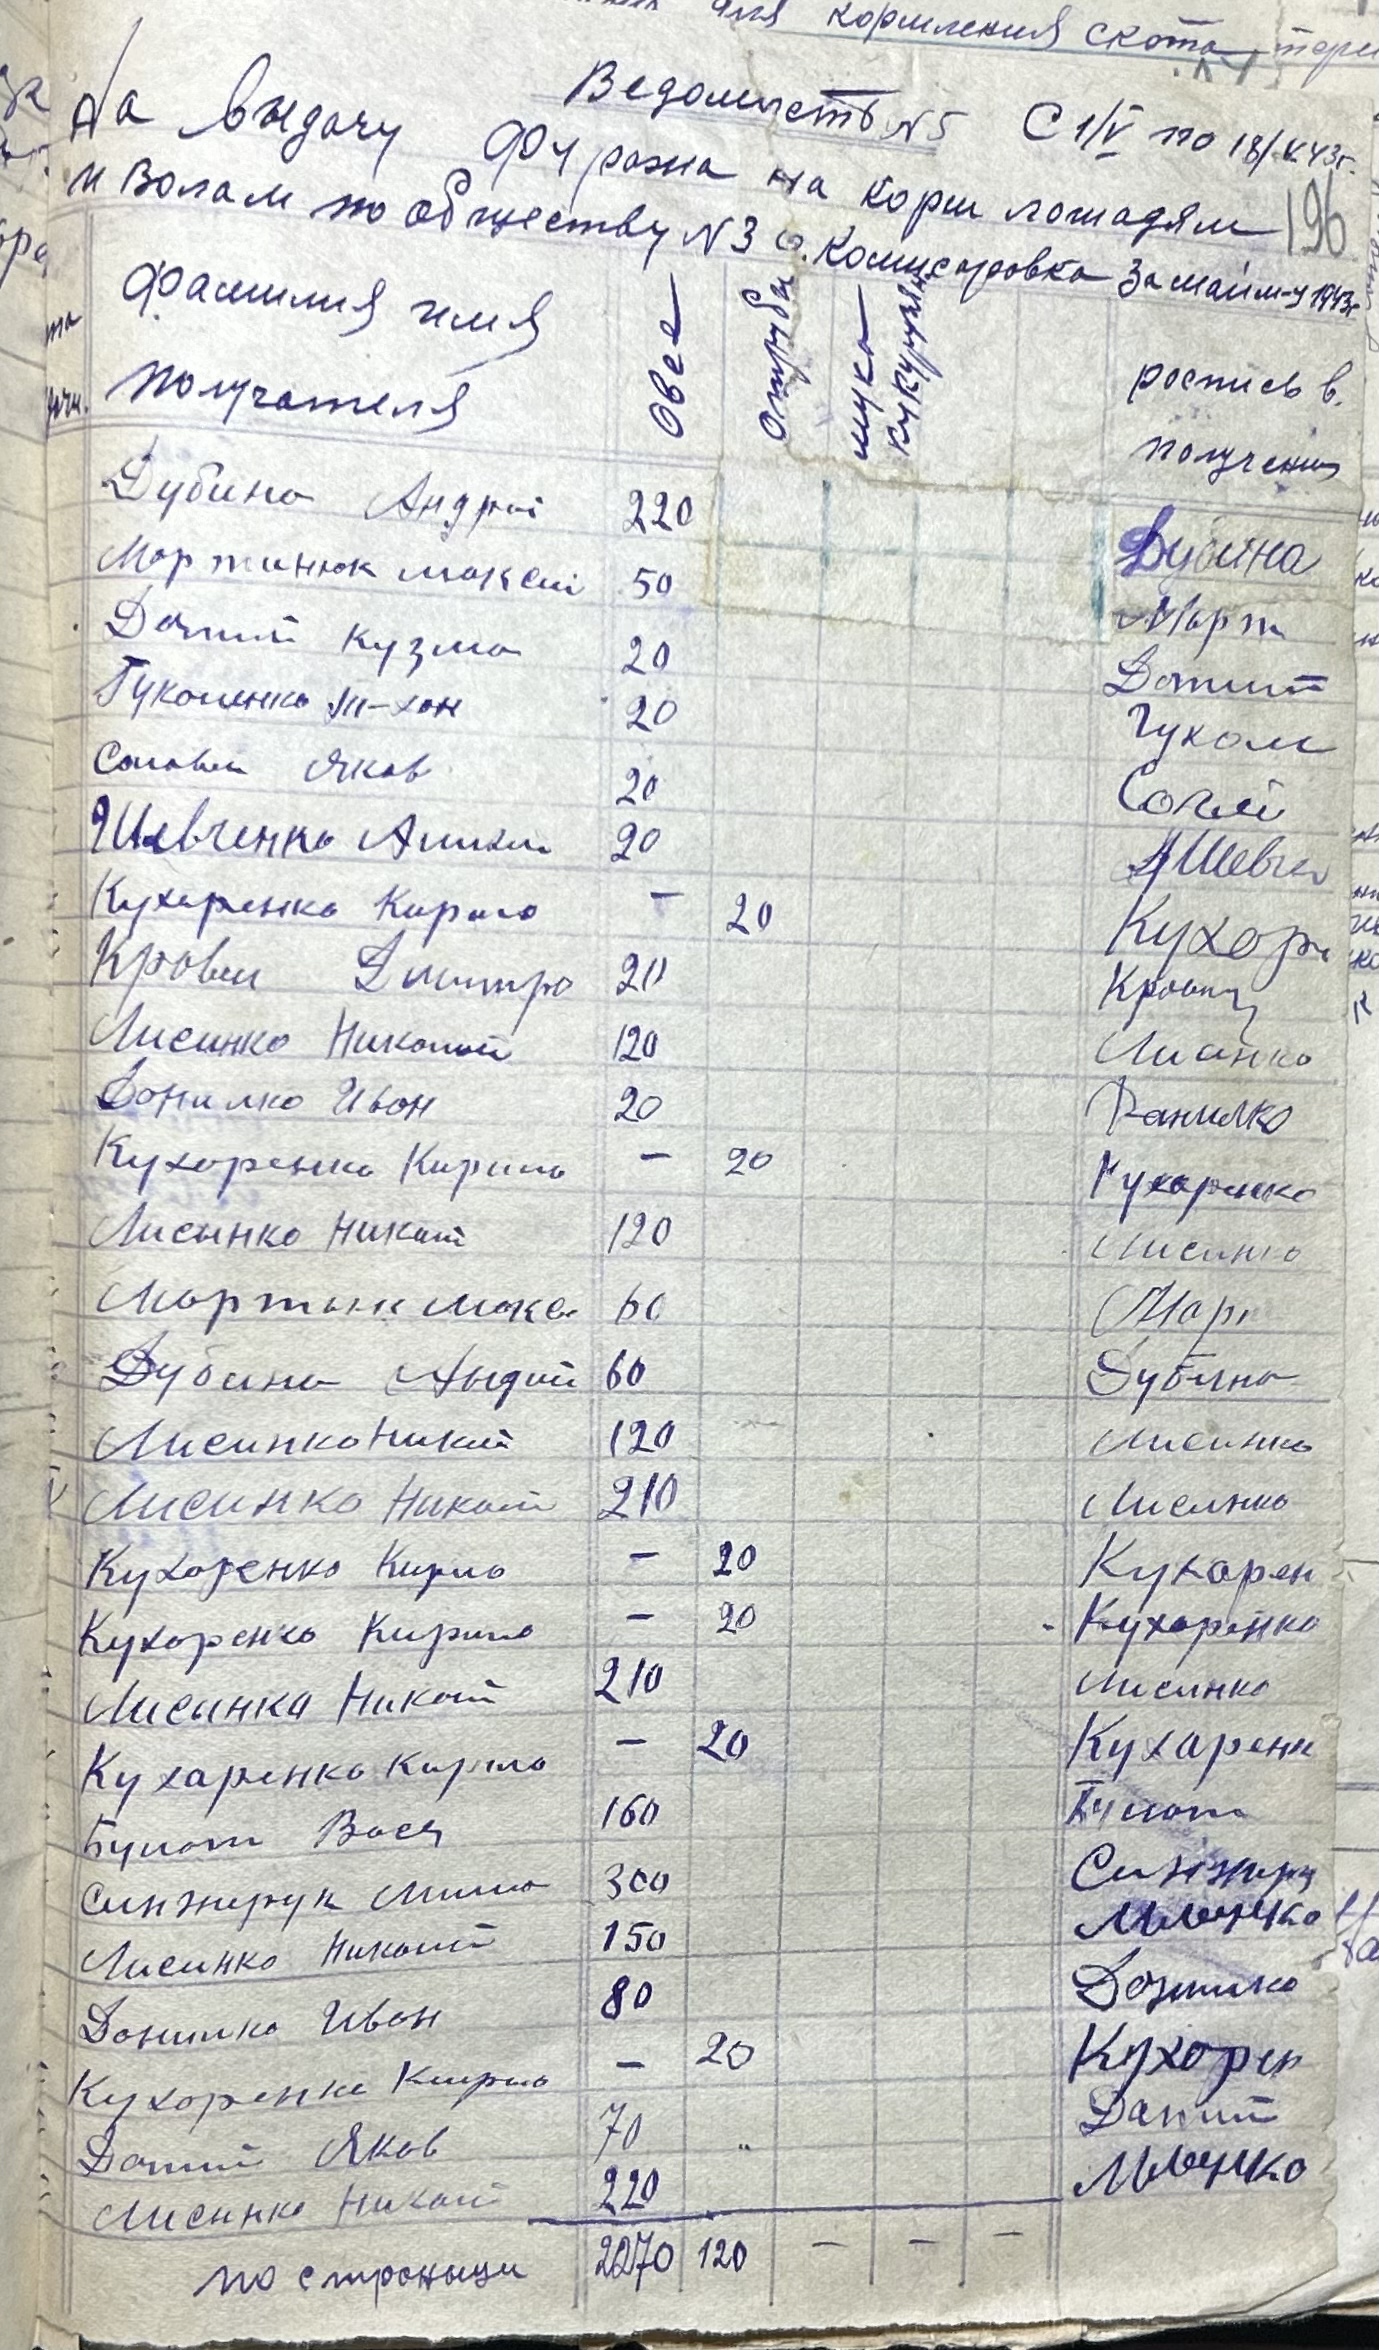 для кормления скота
Ведомость №5 С 1/V по 18/V 43г.
На выдачу фуража на корм лошадям
и волам по обществу №3 с. Комисаровка за май м-ц 1943г
196
Фамилия имя получателя Овес Отруби мука кукурузн роспись в получении
Дубина Андрий 220 Дубина
Мартинюк Максим 50 Март
Доний Кузма 20
20
Соловей Яков 20
Шевченко 20 Шевчен
Кухаренко Кирило - 20 Кухар
Кровец Дмитро 20
Лисинко Николай 120 Лисинко
Данилко Иван 20 Данилко
Кухоренко Кирило - 20 Кухаренко
Лисынко Николай 120 Лисинко
Мартынюк Макс 60 Мар
Дубина Андрий 60 Дубина
Лисинко Никол 120 Лисинко
Лисинко Николай 210 Лисинко
Кухоренко Кирило - 20 Кухарен
Кухоренко Кирило - 20 Кухаренко
Лисинка Николай 210 Лисинко
Кухаренко Кирило - 20 Кухарен
Булат Вася 160 Булат
Синжирук Миша 300 Синжиру
Лисинко Николай 150
Донилко Иван 80 Донилко
Кухоренко Кирило - 20 Кухорен
Доний Яков 70 "
Лисинко Николай 220
по страницы 2270 120 - - -